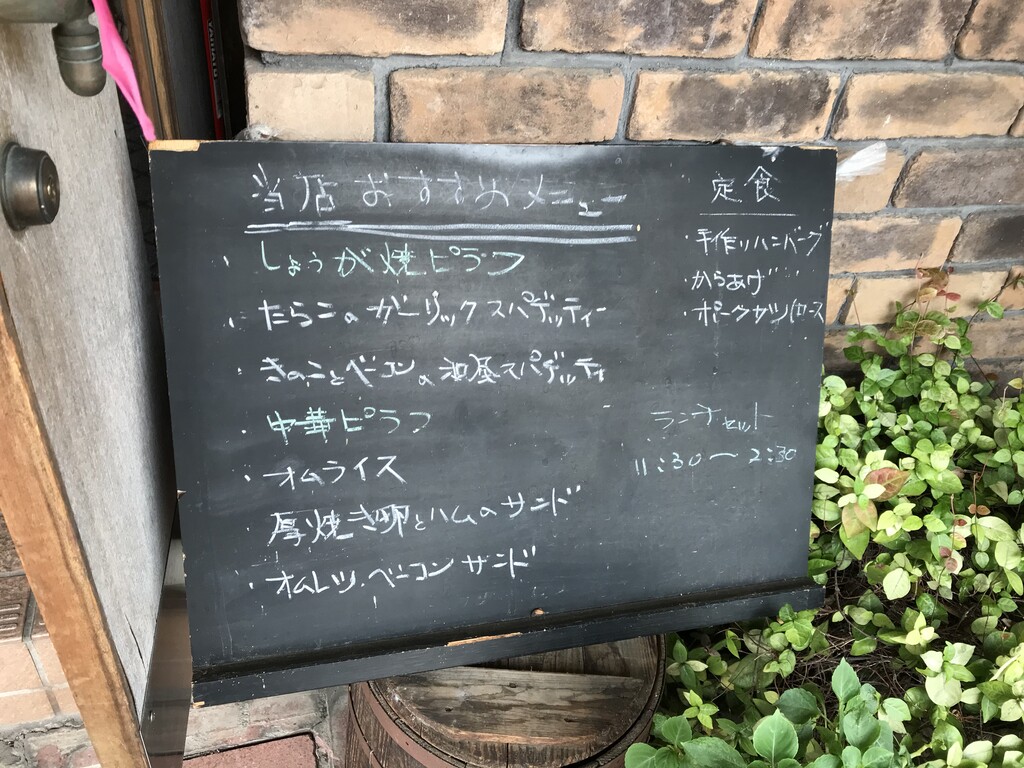 当店おすすめメニュー
・しょうが焼ピラフ
・たらこのガーリックスパゲッティー
・きのことベーコンの和風スパゲッティ
・中華ピラフ
・オムライス
・厚焼き卵とハムのサンド
・オムレツ、ベーコンサンド
定食
・手作りハンバーグ
・からあげ
・ポークサソ(ロース
ランチセット
11:30〜2:30